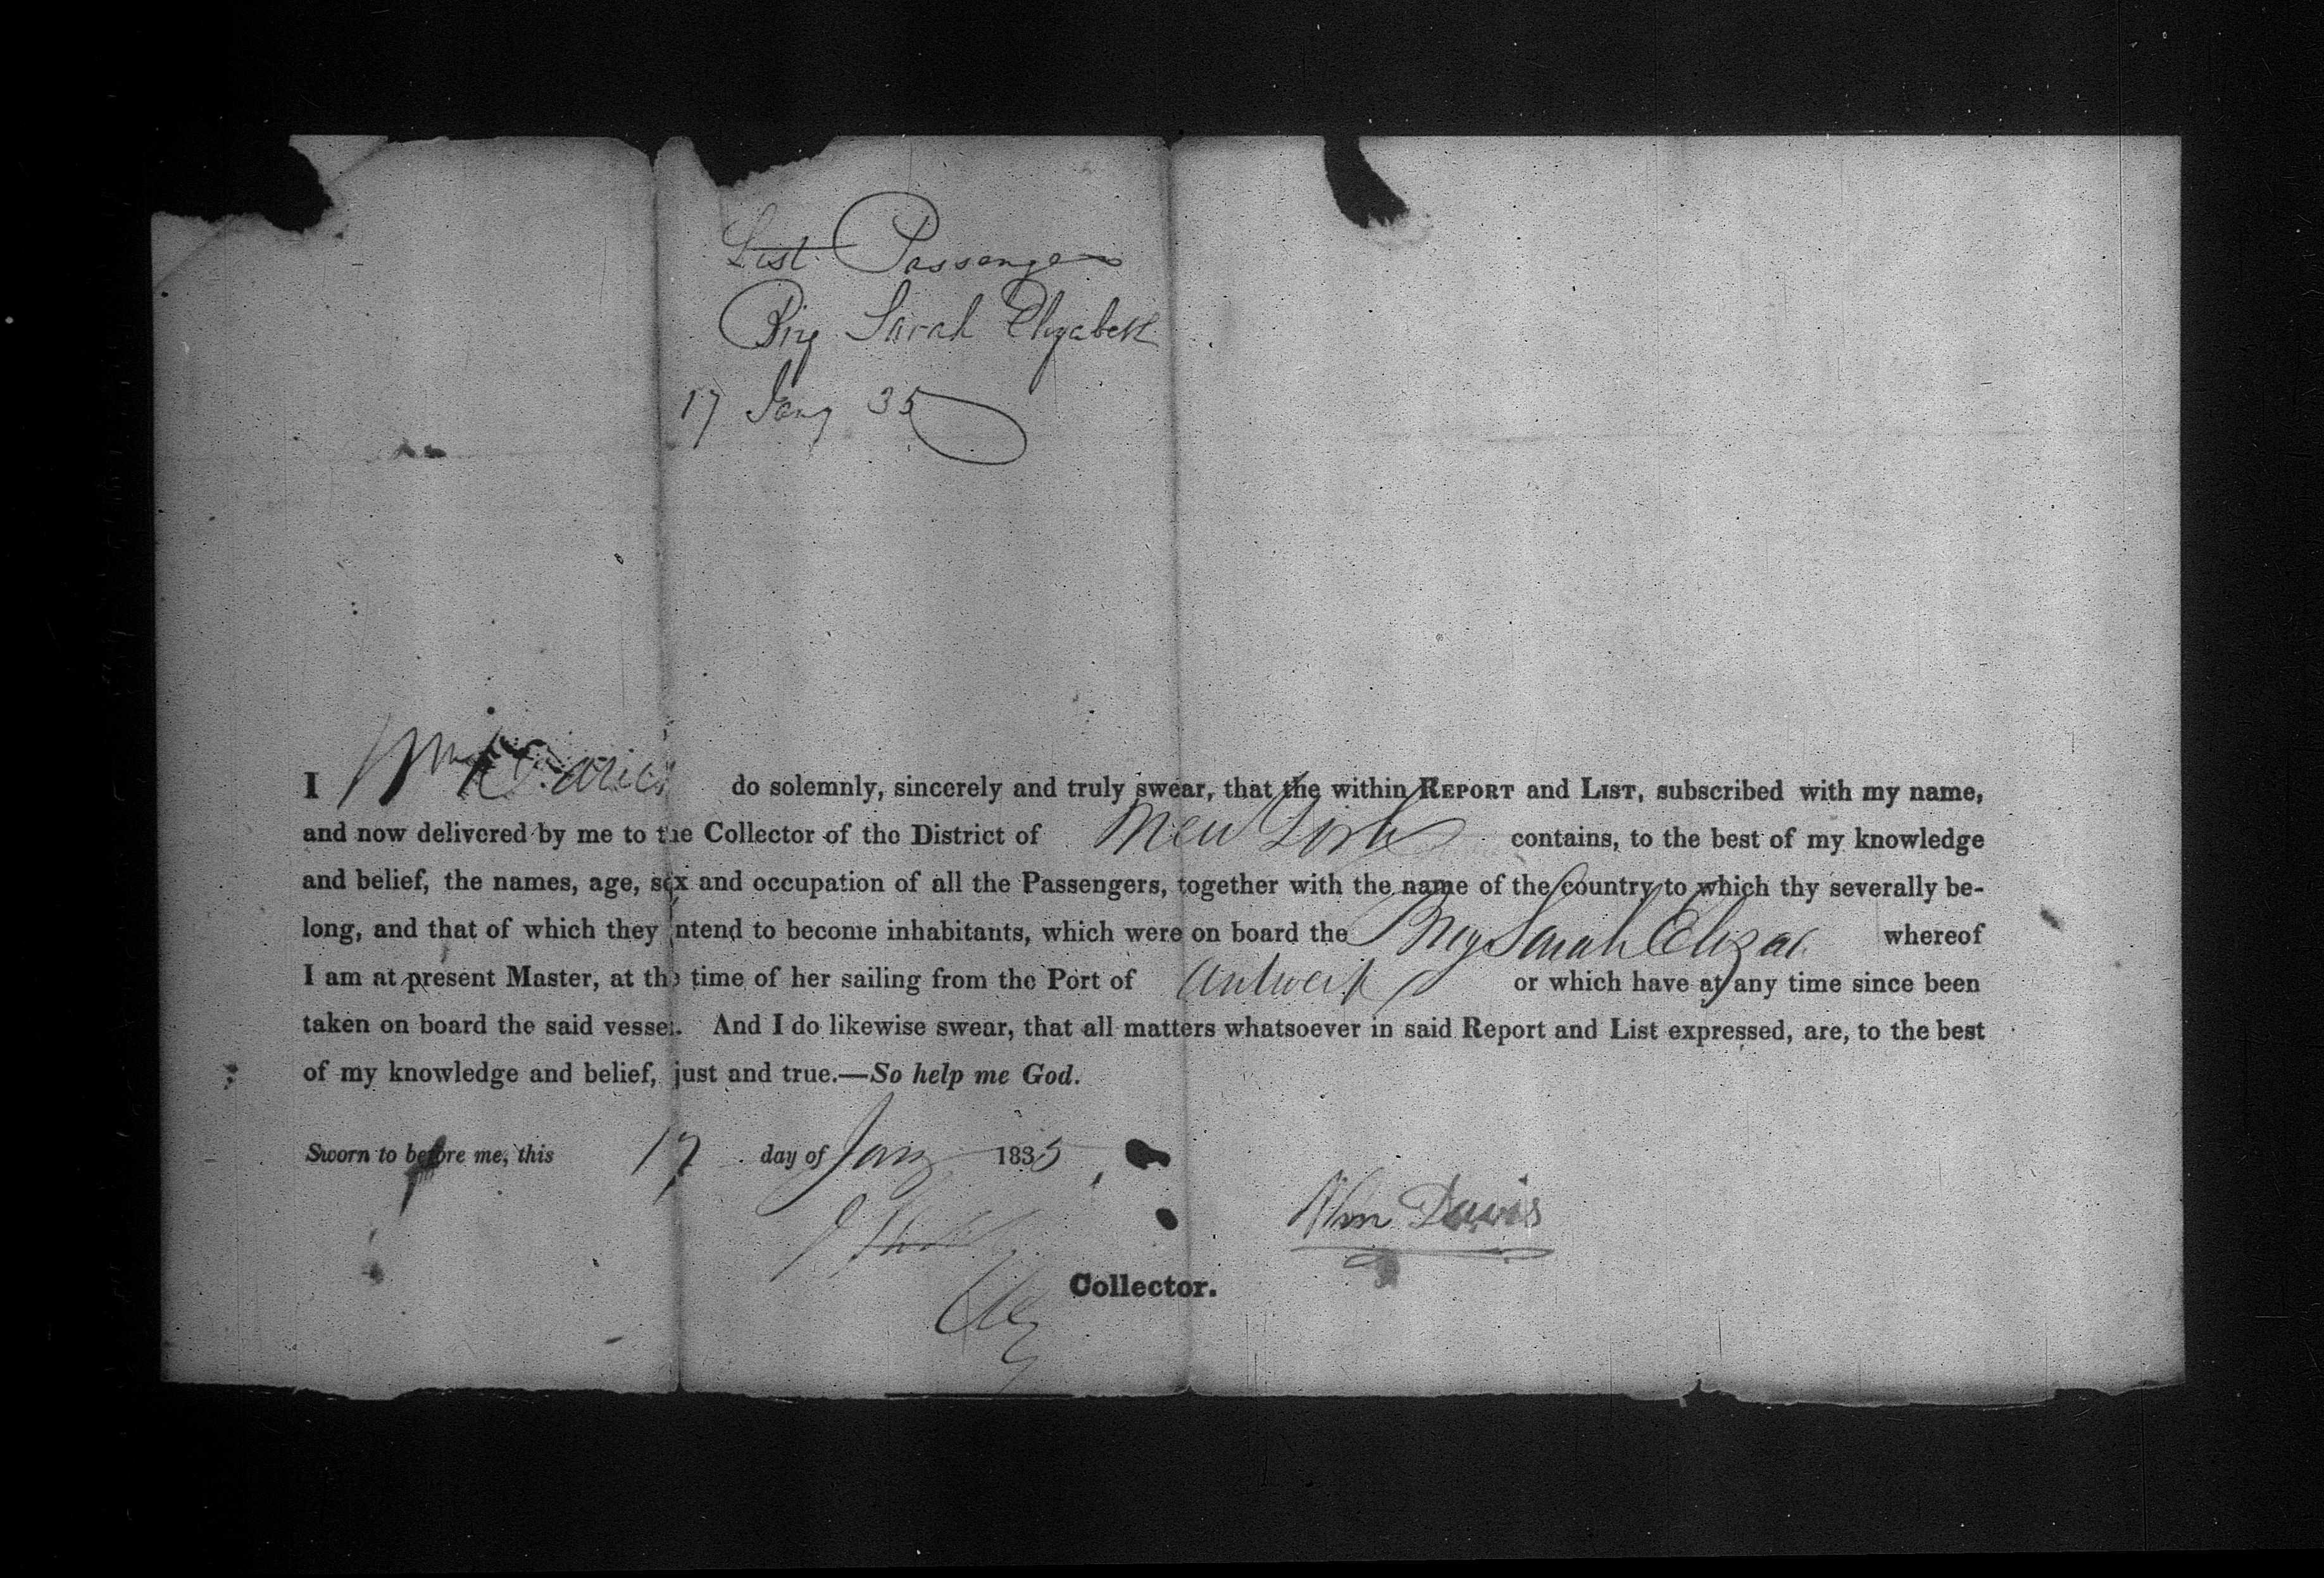 List Passengers
Brig Sarah Elizabeth
17 Jany 35
I Wm Davis do solemnly, sincerely and truly swear, that the within REPORT and LIST, subscribed with my name,
and now delivered by me to the Collector of the District of New York contains, to the best of my knowledge
and belief, the names, age, sex and occupation of all the Passengers, together with the name of the country to which thy severally be-
long, and that of which they intend to become inhabitants, which were on board the Brig Sarah Elizab whereof
I am at present Master, at the time of her sailing from the Port of Antwerp or which have at any time since been
taken on board the said vessel. And I do likewise swear, that all matters whatsoever in said Report and List expressed, are, to the best
of my knowledge and belief, just and true.—So help me God.
Sworn to before me, this 17 day of Jany 1835
Wm Davis
Collector.